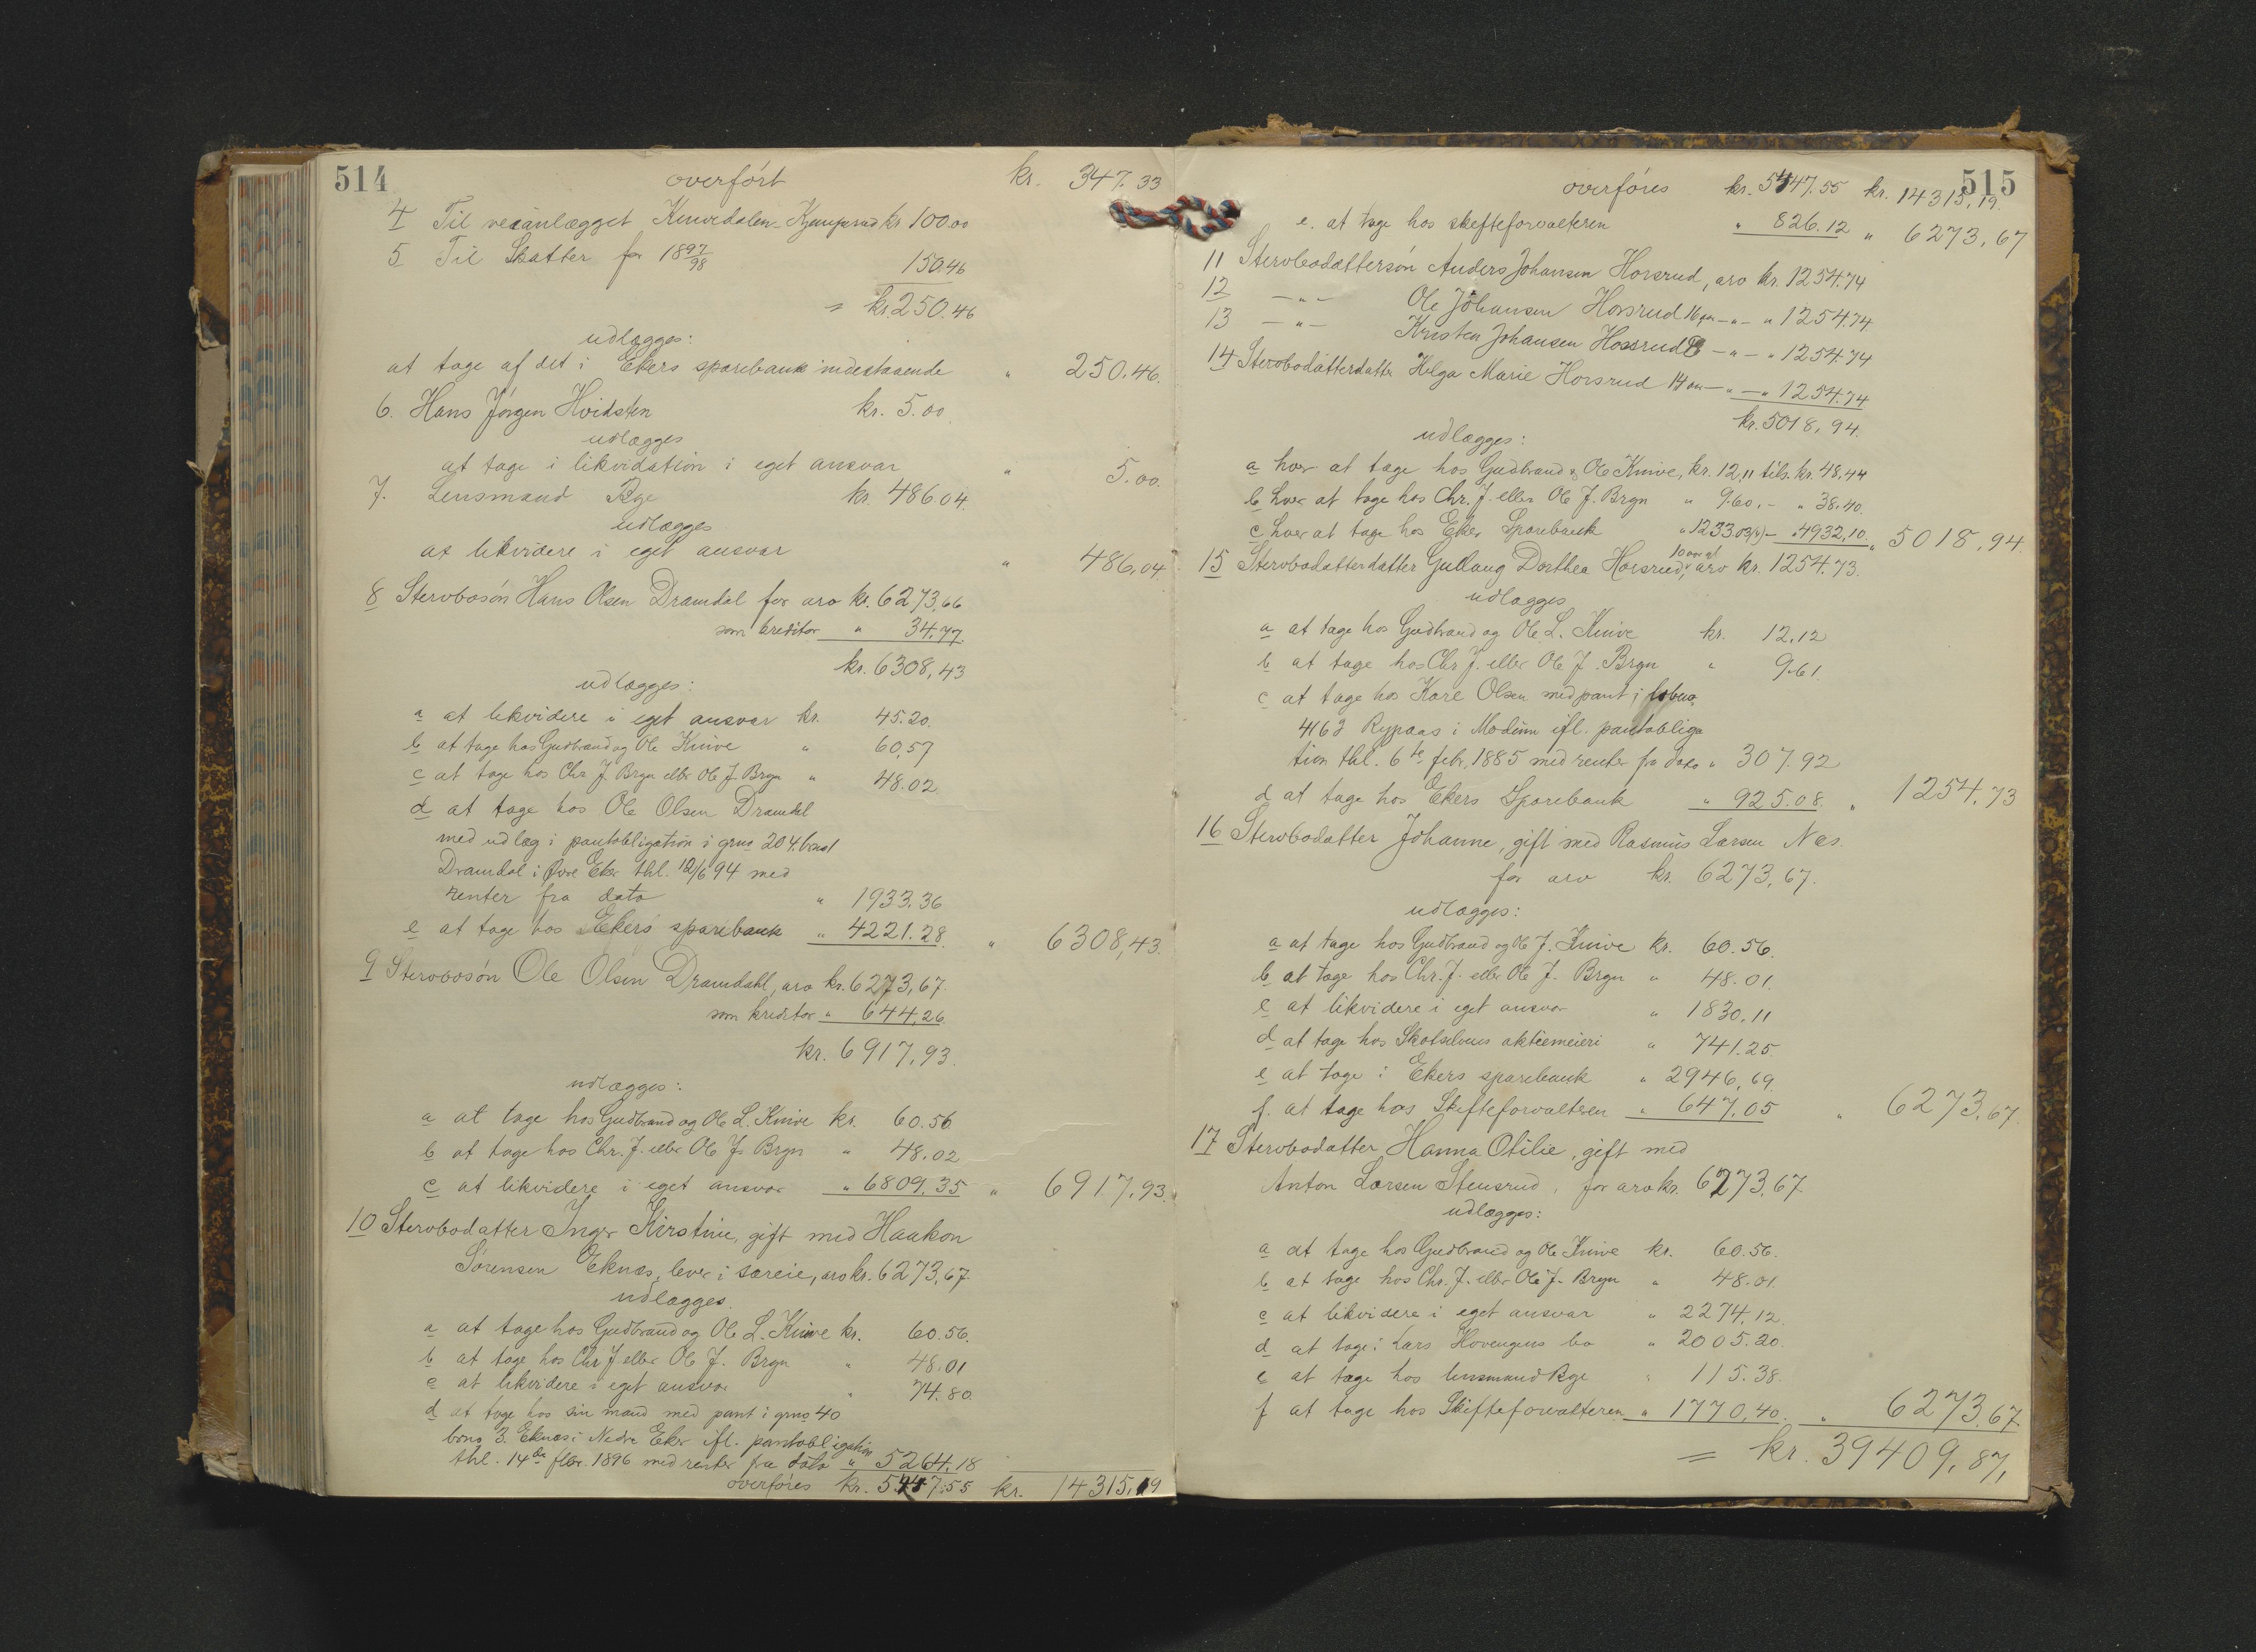 514
overført kr. 347.33
4 Til veianlægget Knivedalen-Kjemperud kr 100.00
5 Til Skatter for 1897/98 150.46
= kr. 250.46
udlægges:
at tage af det i Ekers sparebank indestaaende " 250.46.
6. Hans Jørgen Hvidsten kr. 5.00.
udlægges
at tage i likvidation i eget ansvar " 5.00.
7. Lensmand Rye kr. 486.04.
udlægges
at likvidere i eget ansvar " 486,04
8 Stervbosøn Hans Olsen Dramdal for arv kr. 6273,66
som kreditor " 34.77.
kr. 6308,43
udlægges:
a at likvidere i eget ansvar kr. 45.20.
b at tage hos Gudbrand og Ole Knive " 60,57
c at tage hos Chr. J. Bryn eller Ole J. Bryn " 48.02
d at tage hos Ole Olsen Dramdal
med udlæg i pantobligation i grno 204.
Dramdal i Øvre Eker thl. 12/6 94 med
renter fra dato " 1933.36
e at tage hos Ekers sparebank " 4221.28. " 6308,43.
9 Stervbosøn Ole Olsen Dramdahl, arv kr. 6273,67.
som kreditor " 644,26.
kr. 6917,93.
udlægges:
a at tage hos Gudbrand og Ole L. Knive kr. 60.56
b at tage hos Chr. J. eller Ole J. Bryn " 48.02
c at likvidere i eget ansvar " 6809,35 " 6917,93.
10 Stervbodatter Inger Kirstine, gift med Haakon
Sørensen Eknæs, lever i særeie, arv kr. 6273,67
udlægges.
a at tage hos Gudbrand og Ole L. Knive kr. 60.56.
b at tage hos Chr J. eller Ole J. Bryn " 48.01
c at likvidere i eget ansvar " 74.80
d at tage hos sin mand med pant i grno 40
brno 3. Eknæs i Nedre Eker ifl. pantobligation
thl. 14de 1896 med renter fra dato " 5264,18
overføres kr. 5447.55 kr. 14315,19
515
overføres kr. 5447.55 kr. 14315,19.
e. at tage hos skifteforvalteren " 826.12 " 6273,67
11 Stervbodattersøn Anders Johansen Horsrud, arv kr. 1254.74
12 -"- Ole Johansen Horsrud 16 aar -"- " 1254.74
13 -"- Kristen Johansen Horsrud -"- " 1254.74
14 Stervbodatterdatter Helga Marie Horsrud 14 aar -"- " 1254.74
kr. 5018,94.
udlægges:
a hver at tage hos Gudbrand & Ole Knive, kr. 12,11 tils. kr. 48,44
b hver at tage hos Chr. J. eller Ole J. Bryn " 9.60.- " 38.40.
c hver at tage hos Eker Sparebank " 1233.03(½) - " 4932,10. " 5018,94.
15 Stervbodatterdatter Gullaug Dorthea Horsrud, 10 aar gl arv kr. 1254.73.
udlægges
a at tage hos Gudbrand og Ole L. Knive kr. 12.12
b at tage hos Chr J. eller Ole J. Bryn " 9.61.
c at tage hos Kare Olsen med pant i
4163 Rypaas i Modum ifl. pantobliga
tion thl. 6te febr. 1885 med renter fra dato " 307.92
d at tage hos Ekers Sparebank " 925.08. " 1254.73
16 Stervbodatter Johanne, gift med Rasmus Larsen Næs.
for arv kr. 6273,67.
udlægges:
a at tage hos Gudbrand og Ole J. Knive kr. 60.56.
b at tage hos Chr. J. eller Ole J. Bryn " 48.01.
c at likvidere i eget ansvar " 1830,11
d at tage hos Skotselvens aktiemeieri " 741.25.
e at tage i Ekers sparebank " 2946,69.
f. at tage hos Skifteforvalteren " 647,05 " 6273,67.
17 Stervbodatter Hanna Otilie, gift med
Anton Larsen Stensrud, for arv kr. 6273,67.
udlægges:
a at tage hos Gudbrand og Ole Knive kr. 60.56.
b at tage hos Chr. J. eller Ole J. Bryn " 48.01.
c at likvidere i eget ansvar " 2274,12.
d at tage i Lars Hovengens bo " 2005.20.
e at tage hos lensmand Rye " 115.38.
f at tage hos Skifteforvalteren " 1770,40. " 6273,67
= kr. 39409,87,